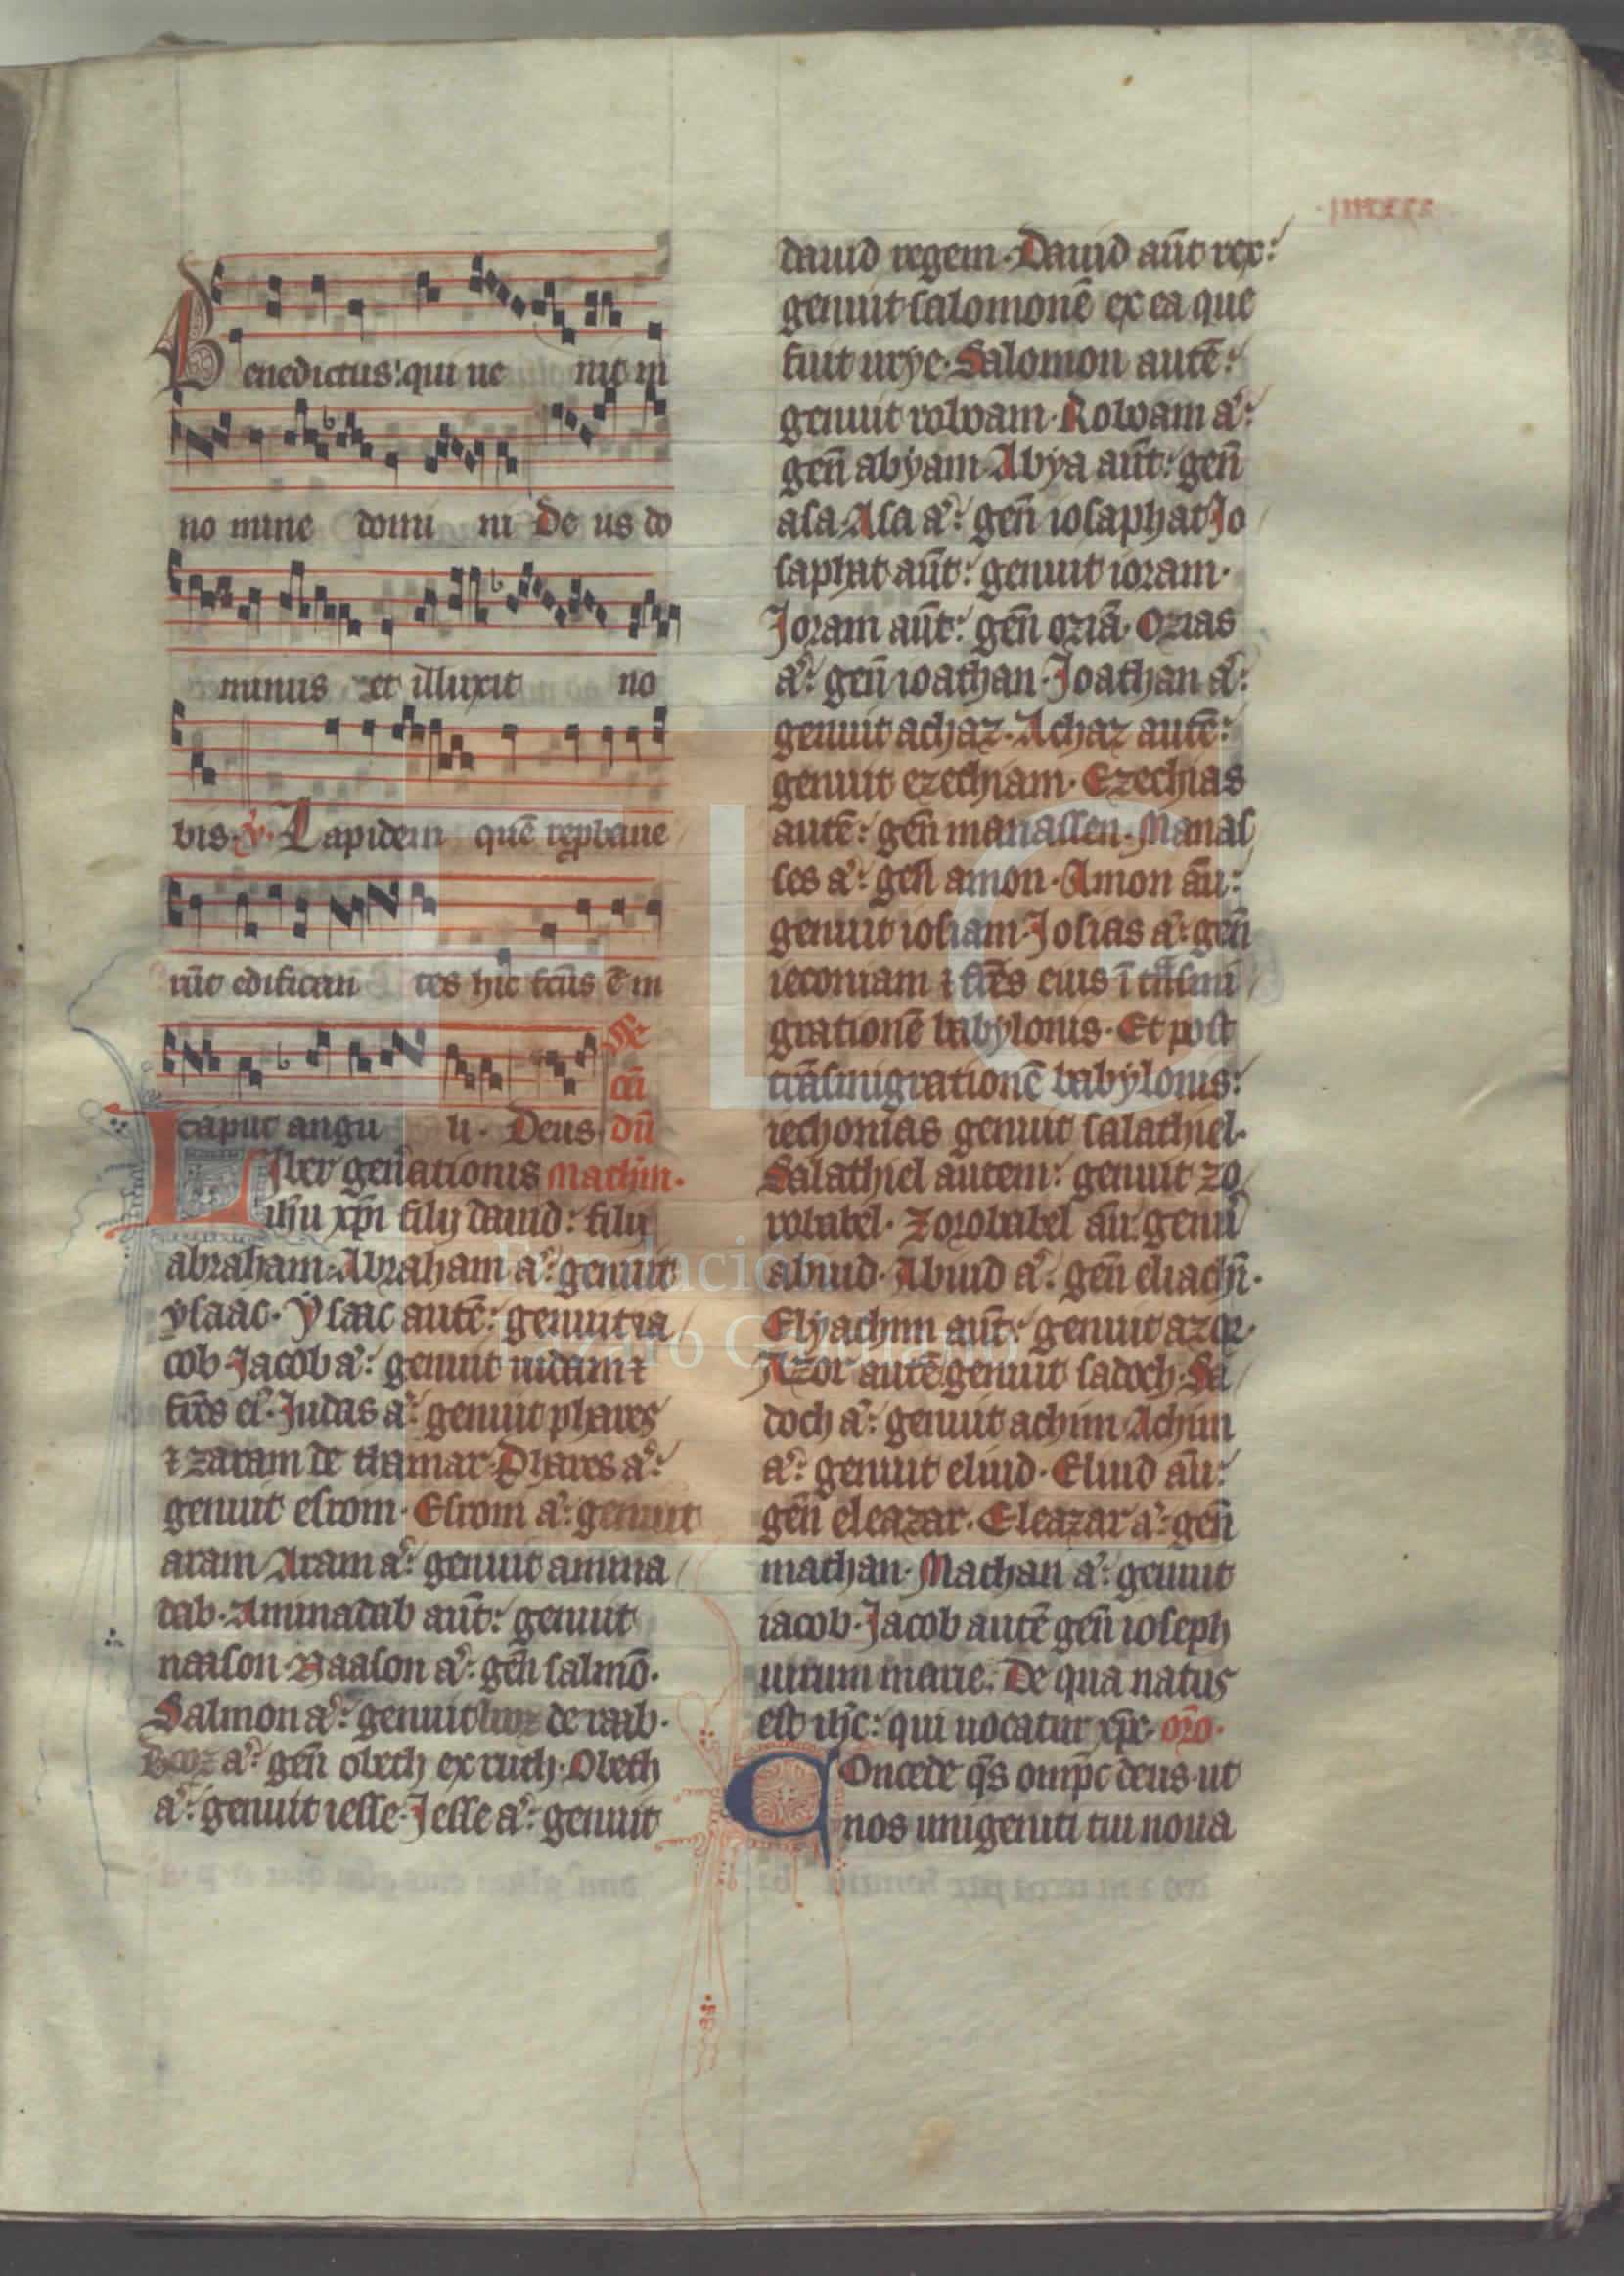 Benedictus: qui ue nit in
no mine domi ni De us do
minus et illuxit no
bis. V. Lapidem quē repbaue
rūt edifican tes hic fcūs ē in
caput angu li. Deus dn̄
Liber gen̄ationis Mathm.
ihu xp̄i filij dauid: filij
abraham. Abraham a: genuit
ysaac. Ysaac autē: genuit ia
cob. Jacob a: genuit iudam ⁊
fr̄es ei. Judas a: genuit phares
⁊ zaram de thamar. Phares a:
genuit esrom. Esrom a: genuit
aram. Aram a: genuit amina
dab. Aminadab aūt: genuit
naason. Naason a: gen̄ salmō.
Salmon a: genuit booz de raab.
Booz a: gen̄ obeth ex ruth. Obeth
a: genuit iesse. Jesse a: genuit
dauid regem. Dauid aūt rex:
genuit salomonē ex ea que
fuit urye. Salomon autē:
genuit roboam. Roboam a:
gen̄ abyam. Abya aūt: gen̄
asa. Asa a: gen̄ iosaphat. Jo
saphat aūt: genuit ioram.
Joram aūt: gen̄ oziā. Ozias
a: gen̄ ioathan. Joathan a:
genuit achaz. Achaz autē:
genuit ezechiam. Ezechias
autē: gen̄ manassen. Manas
ses a: gen̄ amon. Amon aū:
genuit iosiam. Josias a: gen̄
ieconiam ⁊ fr̄es eius ī trāsmi
grationē babylonis. Et post
trāsmigrationē babylonis:
iechonias genuit salathiel.
Salathiel autem: genuit zo
robabel. Zorobabel aū: genu
abiud. Abiud a: gen̄ eliachī.
Elyachim aūt: genuit azor.
Azor autē genuit sadoch. Sa
doch a: genuit achim. Achim
a: genuit eliud. Eliud aū:
gen̄ eleazar. Eleazar a: gen̄
mathan. Mathan a: genuit
iacob. Jacob autē gen̄ ioseph
uirum marie. De qua natus
est ihc: qui uocatur xp̄c. oro.
Concede qs omp̄c deus. ut
nos unigeniti tui noua
Fundación
Lázaro Galdiano